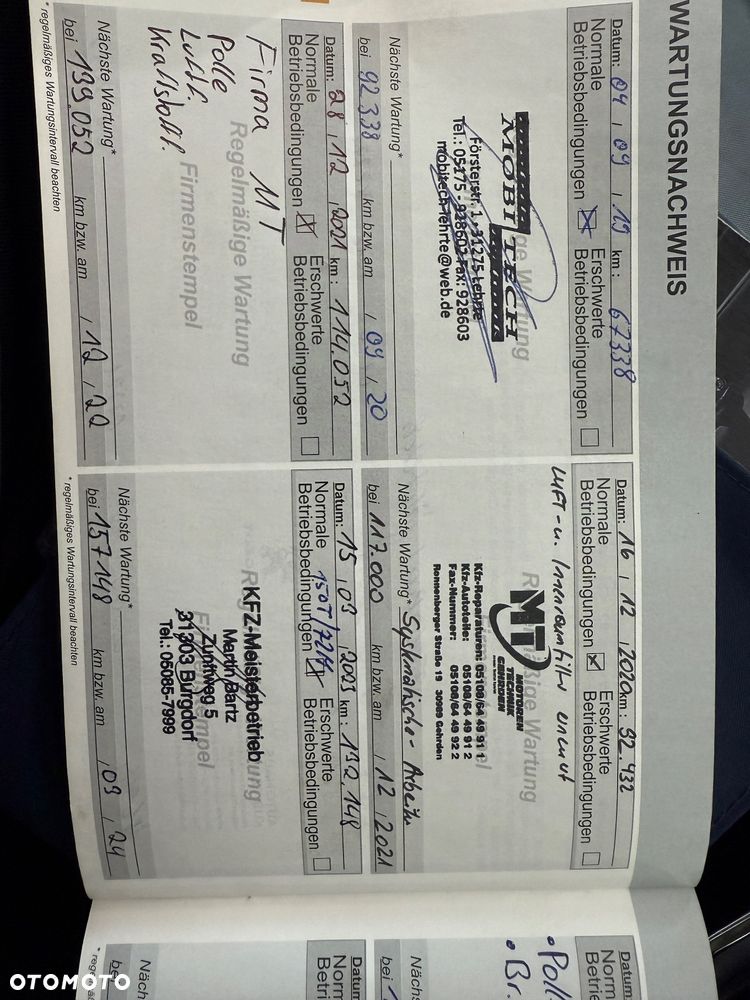 WARTUNGSNACHWEIS
Datum: 04 , 09 , 19 km : 67338
Normale Betriebsbedingungen
Erschwerte Betriebsbedingungen
MOBITECH
Försterstr. 1, 31275 Lehrte
Tel.: 05175 - 928602 Fax: 928603
mobitech-lehrte@web.de
Nächste Wartung*
bei 92 338 km bzw. am , 09 , 20
Datum: 16 , 12 , 2020 km : 92.432
Normale Betriebsbedingungen
Erschwerte Betriebsbedingungen
LUFT-u. Innenraumfilter erneut
MT
MOTOREN
TECHNIK
GEHRDEN
Kfz-Reparaturen: 05108/64 49 91 1
Kfz-Autoteile: 05108/64 49 91 2
Fax-Nummer: 05108/64 49 92 2
Ronnenberger Straße 19 30989 Gehrden
Nächste Wartung* Systematische - Arbeiten
bei 117.000 km bzw. am , 12 , 2021
Datum: 28 , 12 , 2021 km : 114.052
Normale Betriebsbedingungen
Erschwerte Betriebsbedingungen
Firma MT
Polle
Luftf.
Kraftstoff.
Regelmäßige Wartung
Firmenstempel
Nächste Wartung*
bei 139.052 km bzw. am , 12 , 22
* regelmäßiges Wartungsintervall beachten
Datum: 15 , 03 , 2023 km : 132.148
Normale Betriebsbedingungen
Erschwerte Betriebsbedingungen
KFZ-Meisterbetrieb
Martin Bartz
Zunftweg 5
31303 Burgdorf
Tel.: 05085-7999
Nächste Wartung*
bei 157148 km bzw. am , 03 , 24
* regelmäßiges Wartungsintervall beachten
OTOMOTO